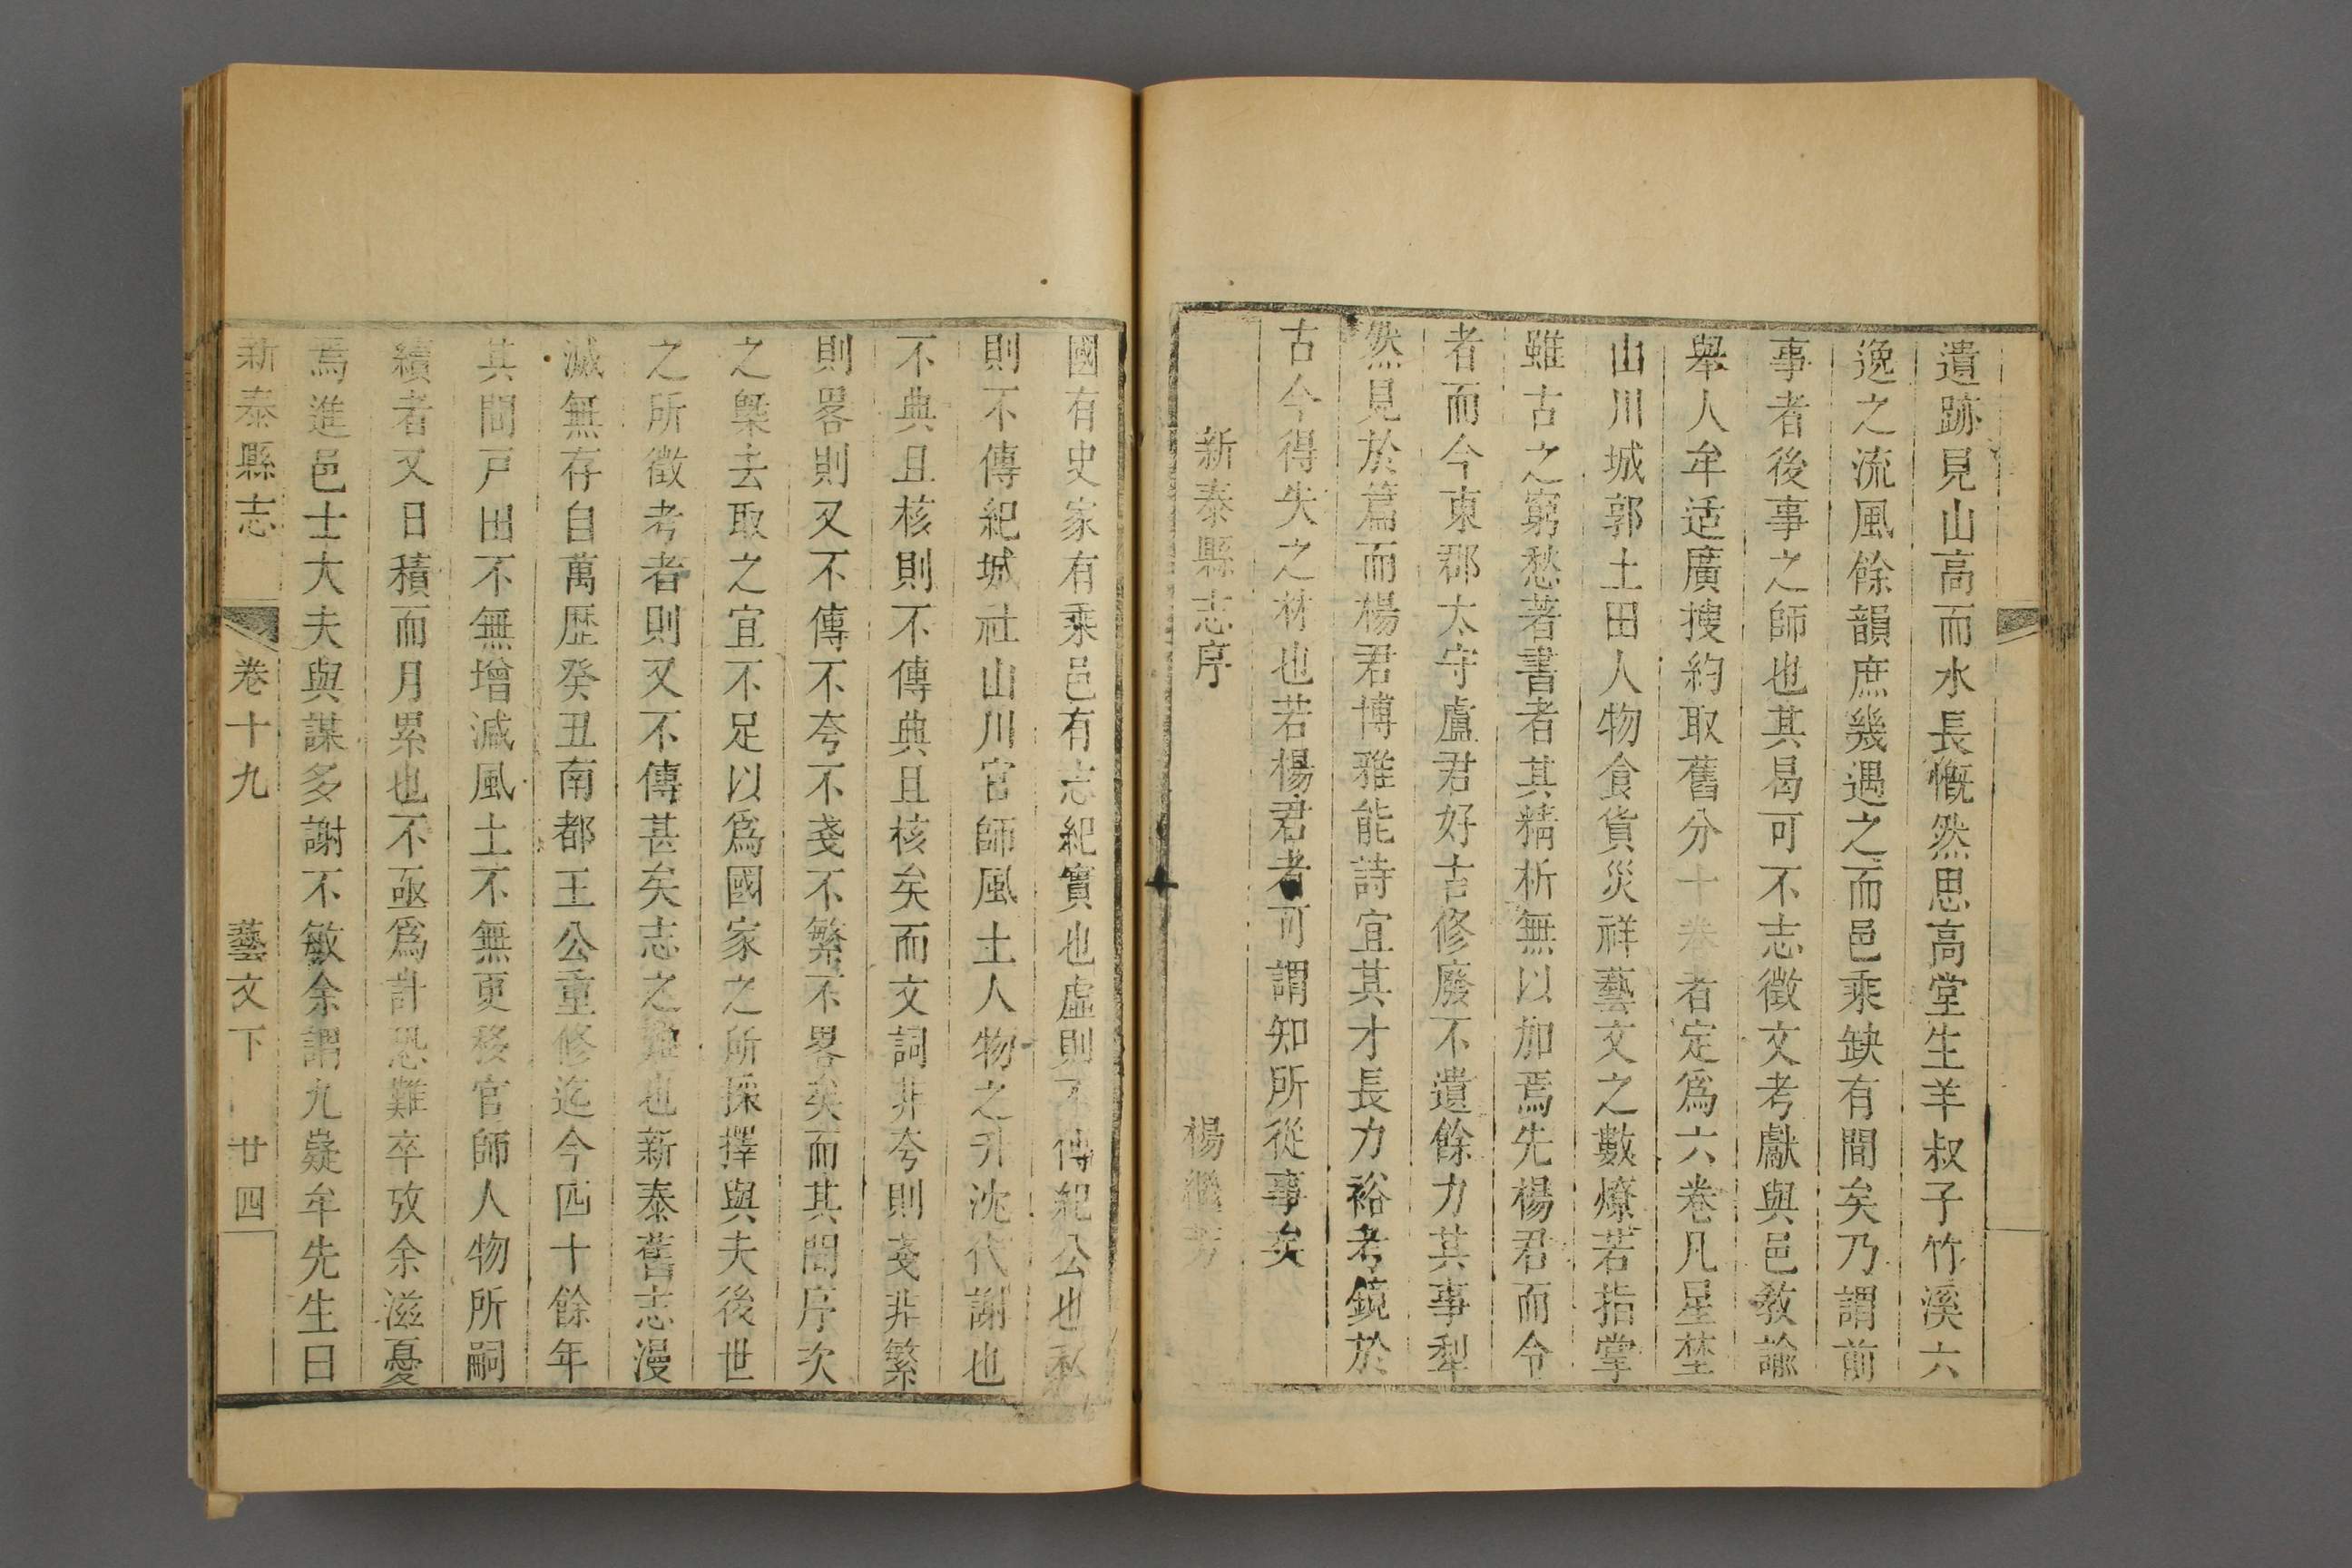 遺跡見山高而水長慨然思高堂生羊叔子竹溪六
逸之流風餘韻庶幾遇之而邑乘缺有間矣乃謂前
事者後事之師也其曷可不志徵文考獻與邑敎諭
舉人牟适廣搜約取舊分十卷者定爲六卷凡星埜
山川城郭土田人物食貨災祥藝文之數燎若指掌
雖古之窮愁著書者其精析無以加焉先楊君而令
者而今東郡太守盧君好古修廢不遺餘力其事犁
然見於篇而楊君博雅能詩宜其才長力裕考鏡於
古今得失之林也若楊君者可謂知所從事矣
新泰縣志序
楊繼芳
國有史家有乘邑有志紀實也虛則不傳紀公也私
則不傳紀城社山川官師風土人物之升沈代謝也
不典且核則不傳典且核矣而文詞非夸則戔非繁
則畧則又不傳不夸不戔不繁不畧矣而其間序次
之槩去取之宜不足以爲國家之所採擇與夫後世
之所徵考者則又不傳甚矣志之難也新泰舊志漫
滅無存自萬歷癸丑南都王公重修迄今四十餘年
其間戸田不無增減風土不無更移官師人物所嗣
續者又日積而月累也不亟爲計恐難卒攷余滋憂
焉進邑士大夫與謀多謝不敏余謂九嶷牟先生曰
新泰縣志
卷十九
藝文下
廿四